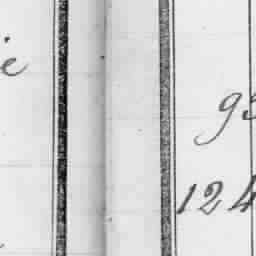 ie
93
124